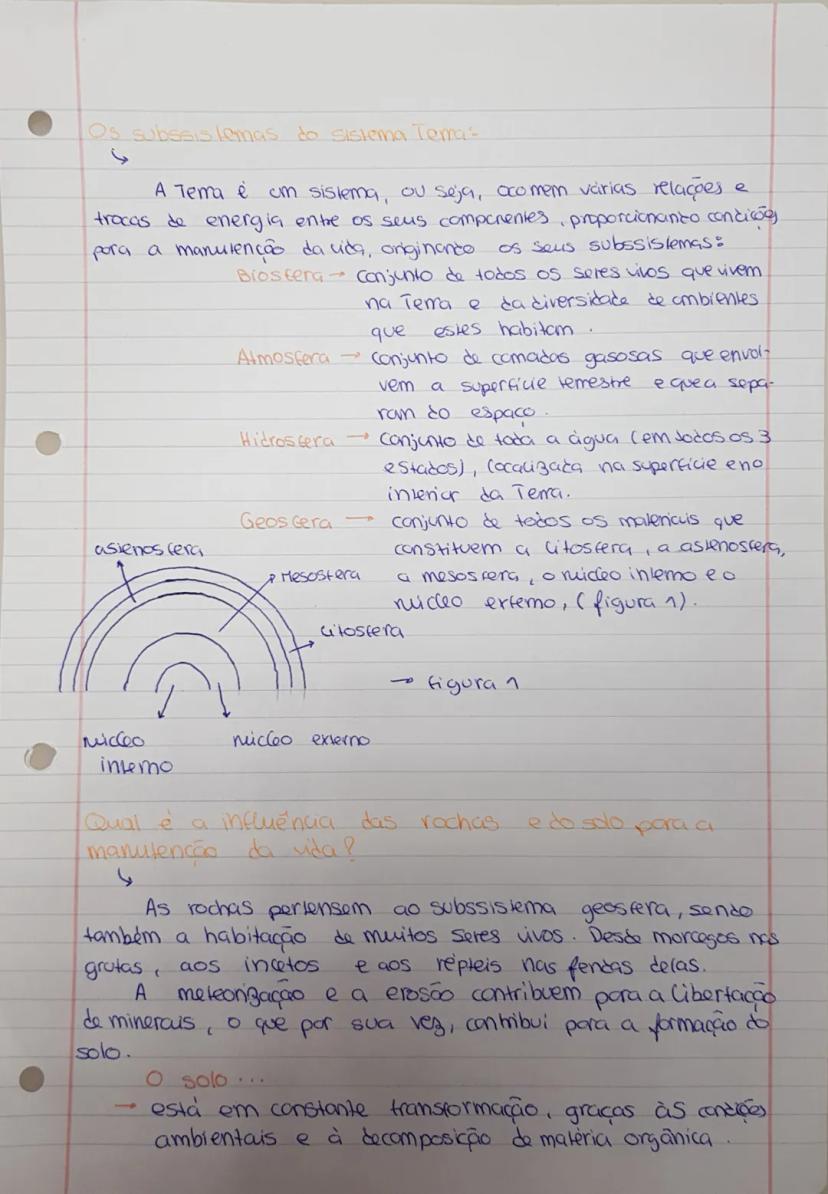 Os subssistemas do sistema Terra:
A Terra é um sistema, ou seja, ocorrem várias relações e
trocas de energia entre os seus componentes, proporcionanto condições
para a manutenção da vida, originanto os seus subssistemas:
Biosfera → conjunto de todos os seres vivos que vivem
na Terra e da diversidade de ambientes
que estes habitam.
Atmosfera → conjunto de camadas gasosas que envol-
vem a superfície terrestre e que a sepa-
ram do espaço.
Hidrosfera → conjunto de toda a água (em todos os 3
estados), localizada na superfície e no
interior da Terra.
Geosfera → conjunto de todos os materiais que
constituem a litosfera, a astenosfera,
a mesosfera, o núcleo interno e o
núcleo externo, (figura 1).
astenosfera
Mesosfera
litosfera
→ figura 1
núcleo
interno
núcleo externo
Qual é a influência das rochas e do solo para a
manutenção da vida?
As rochas pertensem ao subssistema geosfera, sendo
também a habitação de muitos seres vivos. Desde morcegos nas
grutas, aos incetos e aos répteis nas fendas delas.
A meteorização e a erosão contribuem para a libertação
de minerais, o que por sua vez, contribui para a formação do
solo.
O solo...
→ está em constante transformação, graças às condições
ambientais e à decomposição de matéria orgânica.